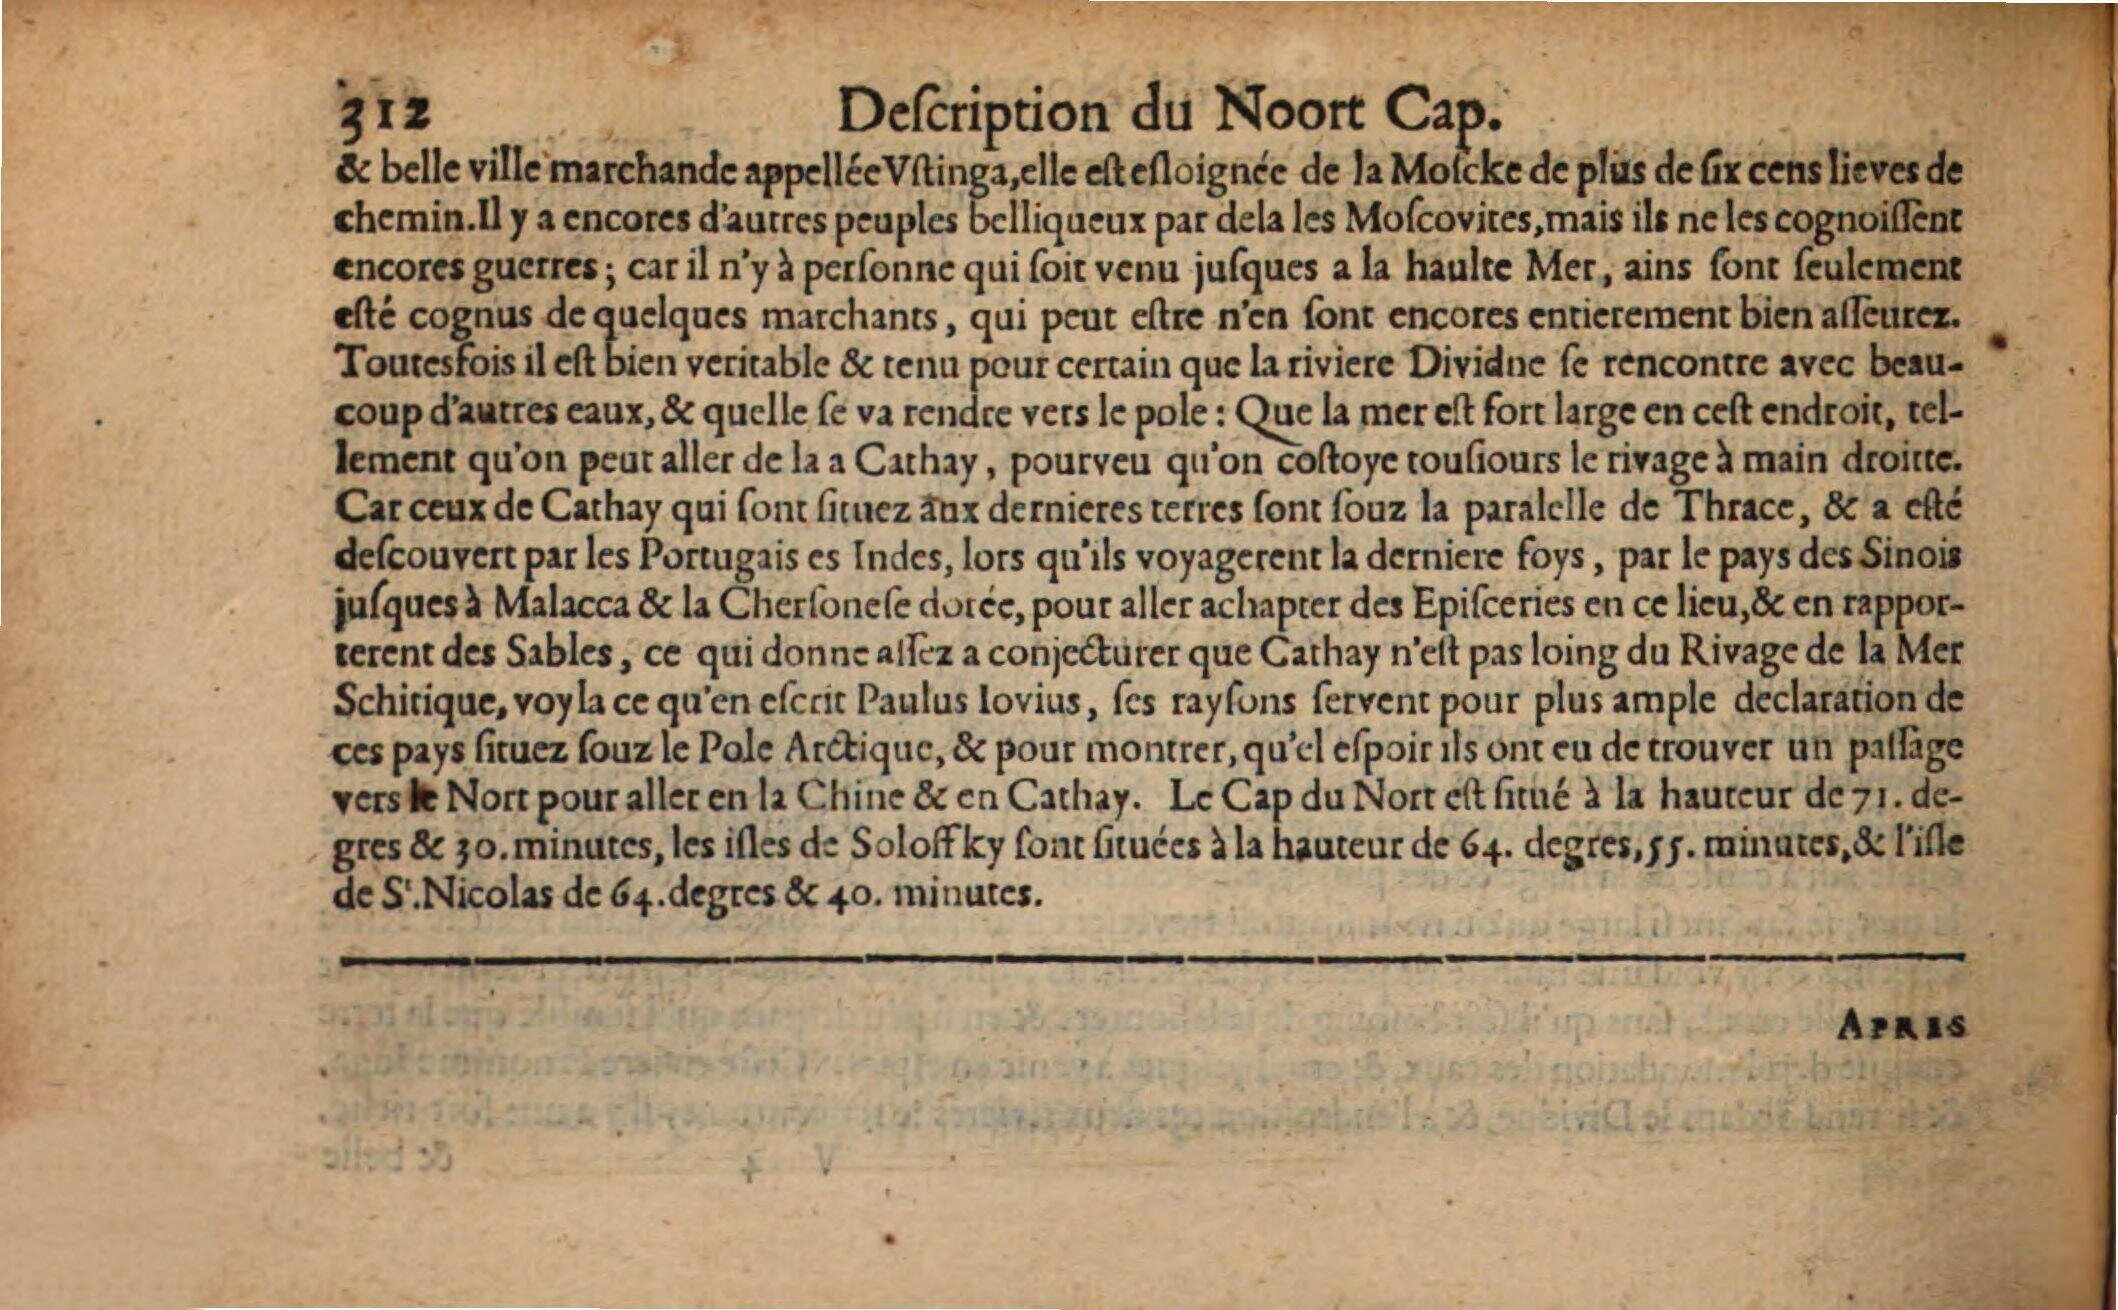 312 Deſcription du Noort Cap.
& belle ville marchande appellée Vſtinga, elle eſt eſloignée de la Moſcke de plus de ſix cens lieves de
chemin. Il y a encores d'autres peuples belliqueux par dela les Moſcovites, mais ils ne les cognoiſſent
encores guerres; car il n'y à perſonne qui ſoit venu juſques a la haulte Mer, ains ſont ſeulement
eſté cognus de quelques marchants, qui peut eſtre n'en ſont encores entierement bien aſſeurez.
Toutesfois il eſt bien veritable & tenu pour certain que la riviere Dividne ſe rencontre avec beau-
coup d'autres eaux, & quelle ſe va rendre vers le pole: Que la mer eſt fort large en ceſt endroit, tel-
lement qu'on peut aller de la a Cathay, pourveu qu'on coſtoye touſiours le rivage à main droitte.
Car ceux de Cathay qui ſont ſituez aux dernieres terres ſont ſouz la paralelle de Thrace, & a eſté
deſcouvert par les Portugais es Indes, lors qu'ils voyagerent la derniere foys, par le pays des Sinois
juſques à Malacca & la Cherſoneſe dorée, pour aller achapter des Epiſceries en ce lieu, & en rappor-
terent des Sables, ce qui donne aſſez a conjecturer que Cathay n'eſt pas loing du Rivage de la Mer
Schitique, voyla ce qu'en eſcrit Paulus Iovius, ſes rayſons ſervent pour plus ample declaration de
ces pays ſituez ſouz le Pole Arctique, & pour montrer, qu'el eſpoir ils ont eu de trouver un paſſage
vers le Nort pour aller en la Chine & en Cathay. Le Cap du Nort eſt ſitué à la hauteur de 71. de-
gres & 30. minutes, les iſles de Soloffky ſont ſituées à la hauteur de 64. degres, 55. minutes, & l'iſle
de St. Nicolas de 64. degres & 40. minutes.
APRES